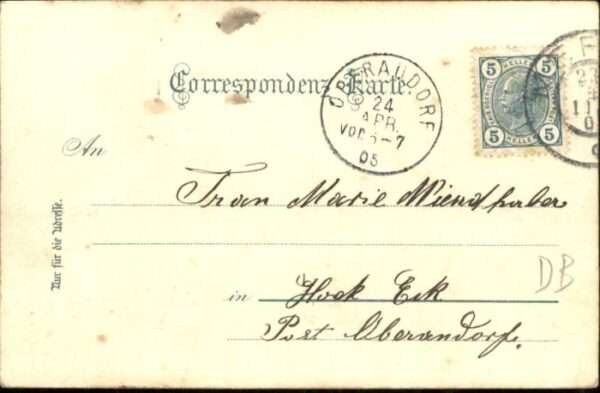 Correspondenz-Karte.
OBERAUDORF
24
APR.
VOR 6-7
05
5 HELLER 5
5 HELLER 5
An
Frau Marie Wiendhaber
in Hock Eck
Post Oberaudorf.
Nur für die Adresse.
DB